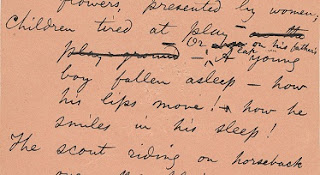 flowers, presented by women;
Children tired at play on the
play-ground — Or on his father's lap
A young
boy fallen asleep — how
his lips move! — how he
smiles in his sleep!
The scout riding on horseback